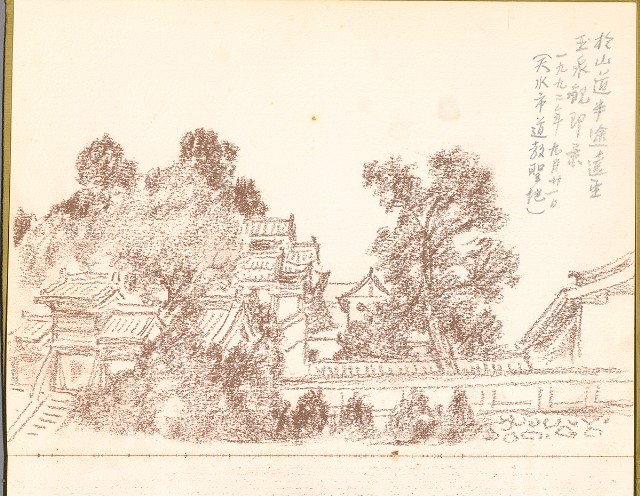 於山道半途遠望
玉泉觀即景
一九九二年九月廿一日
(天水市道教聖地)